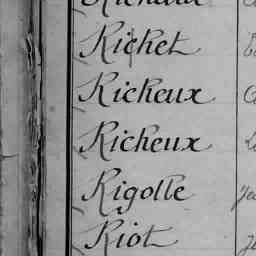 Richet
Richeux
Richeux
Rigolle
Riot